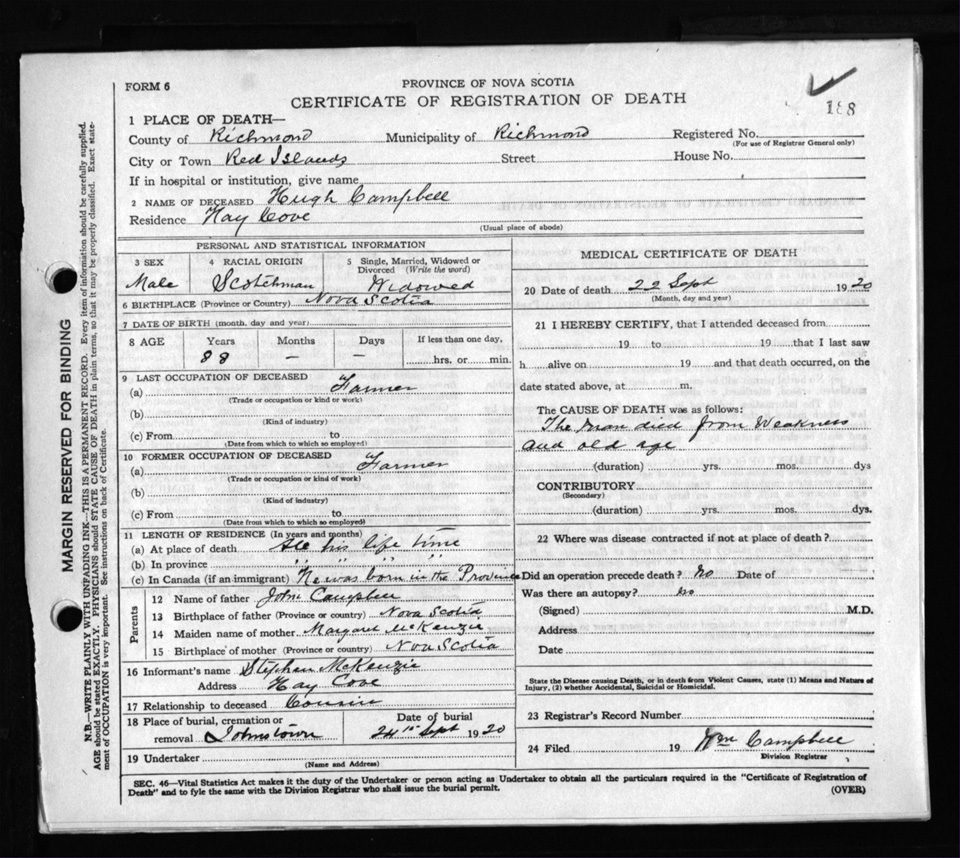 FORM 6
PROVINCE OF NOVA SCOTIA
CERTIFICATE OF REGISTRATION OF DEATH
188
1 PLACE OF DEATH—
County of Richmond Municipality of Richmond Registered No.
(For use of Registrar General only)
City or Town Red Islands Street House No.
If in hospital or institution, give name
2 NAME OF DECEASED Hugh Campbell
Residence Hay Cove
(Usual place of abode)
PERSONAL AND STATISTICAL INFORMATION
3 SEX
Male
4 RACIAL ORIGIN
Scotchman
5 Single, Married, Widowed or
Divorced (Write the word)
Widowed
6 BIRTHPLACE (Province or Country) Nova Scotia
7 DATE OF BIRTH (month, day and year)
8 AGE Years Months Days If less than one day,
88 — — hrs. or min.
9 LAST OCCUPATION OF DECEASED
(a) Farmer
(Trade or occupation or kind or work)
(b)
(Kind of industry)
(c) From to
(Date from which to which so employed)
10 FORMER OCCUPATION OF DECEASED
(a) Farmer
(Trade or occupation or kind of work)
(b)
(Kind of industry)
(c) From to
(Date from which to which so employed)
11 LENGTH OF RESIDENCE (In years and months)
(a) At place of death All his life time
(b) In province " " "
(c) In Canada (if an immigrant) He was born in the Province
Parents
12 Name of father John Campbell
13 Birthplace of father (Province or country) Nova Scotia
14 Maiden name of mother Margaret McKenzie
15 Birthplace of mother (Province or country) Nova Scotia
16 Informant's name Stephen McKenzie
Address Hay Cove
17 Relationship to deceased Cousin
18 Place of burial, cremation or
removal Johnstown
Date of burial
24th Sept 1920
19 Undertaker
(Name and Address)
MEDICAL CERTIFICATE OF DEATH
20 Date of death 22 Sept 1920
(Month, day and year)
21 I HEREBY CERTIFY, that I attended deceased from
19 to 19 that I last saw
h alive on 19 and that death occurred, on the
date stated above, at m.
The CAUSE OF DEATH was as follows:
The man died from Weakness
and old age
(duration) yrs. mos. dys
CONTRIBUTORY
(Secondary)
(duration) yrs. mos. dys.
22 Where was disease contracted if not at place of death?
Did an operation precede death? No Date of
Was there an autopsy? No
(Signed) M.D.
Address
Date
State the Disease causing Death, or in death from Violent Causes, state (1) Means and Nature of
Injury, (2) whether Accidental, Suicidal or Homicidal.
23 Registrar's Record Number
24 Filed 19 Wm Campbell
Division Registrar
SEC. 46—Vital Statistics Act makes it the duty of the Undertaker or person acting as Undertaker to obtain all the particulars required in the "Certificate of Registration of
Death" and to fyle the same with the Division Registrar who shall issue the burial permit.
(OVER)
MARGIN RESERVED FOR BINDING
N.B.—WRITE PLAINLY WITH UNFADING INK—THIS IS A PERMANENT RECORD. Every item of information should be carefully supplied.
AGE should be stated EXACTLY. PHYSICIANS should STATE CAUSE OF DEATH in plain terms, so that it may be properly classified. Exact state-
ment of OCCUPATION is very important. See instructions on back of Certificate.